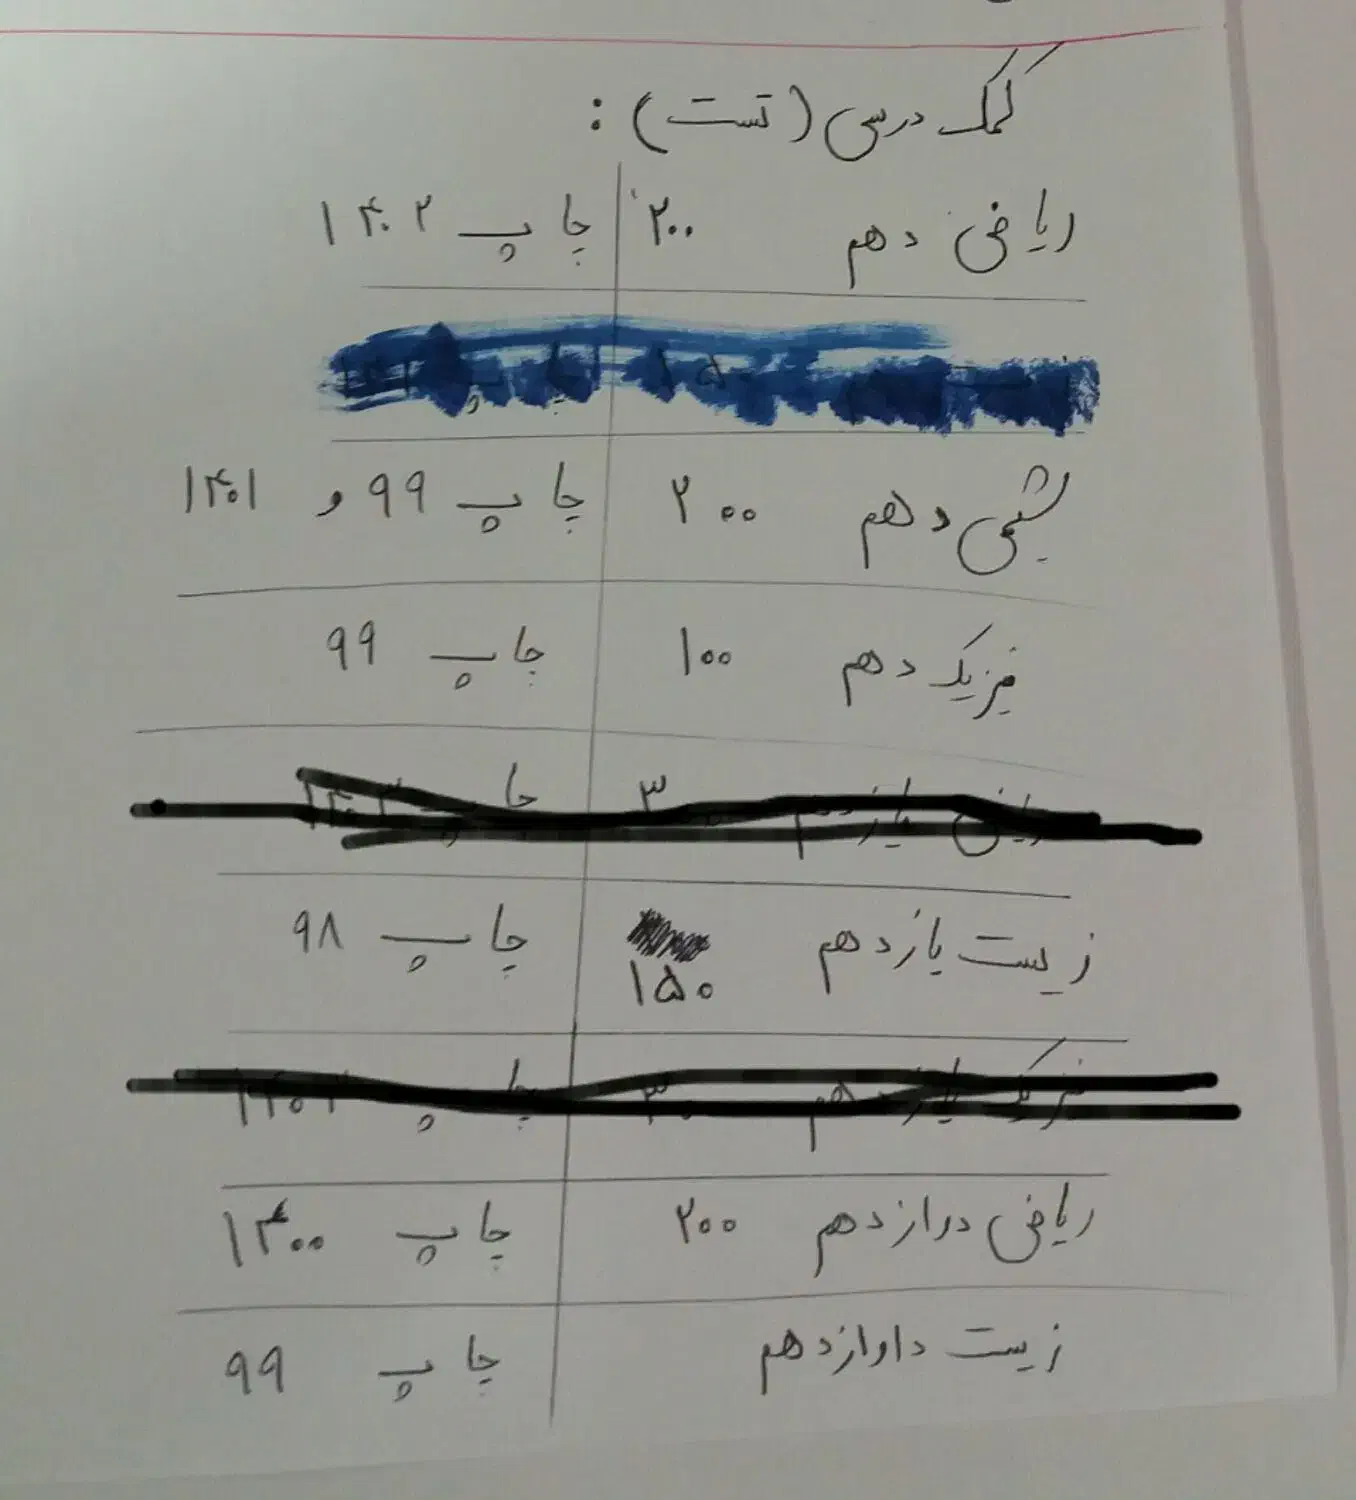 کمک درسی (تست) :
ریاضی دهم ۲۰۰ چاپ ۱۴۰۲
شیمی دهم ۲۰۰ چاپ ۹۹ و ۱۴۰۱
فیزیک دهم ۱۰۰ چاپ ۹۹
ریاضی یازدهم چاپ
زیست یازدهم ۱۵۰ چاپ ۹۸
فیزیک یازدهم چاپ
ریاضی دوازدهم ۲۰۰ چاپ ۱۴۰۰
زیست داوازدهم چاپ ۹۹